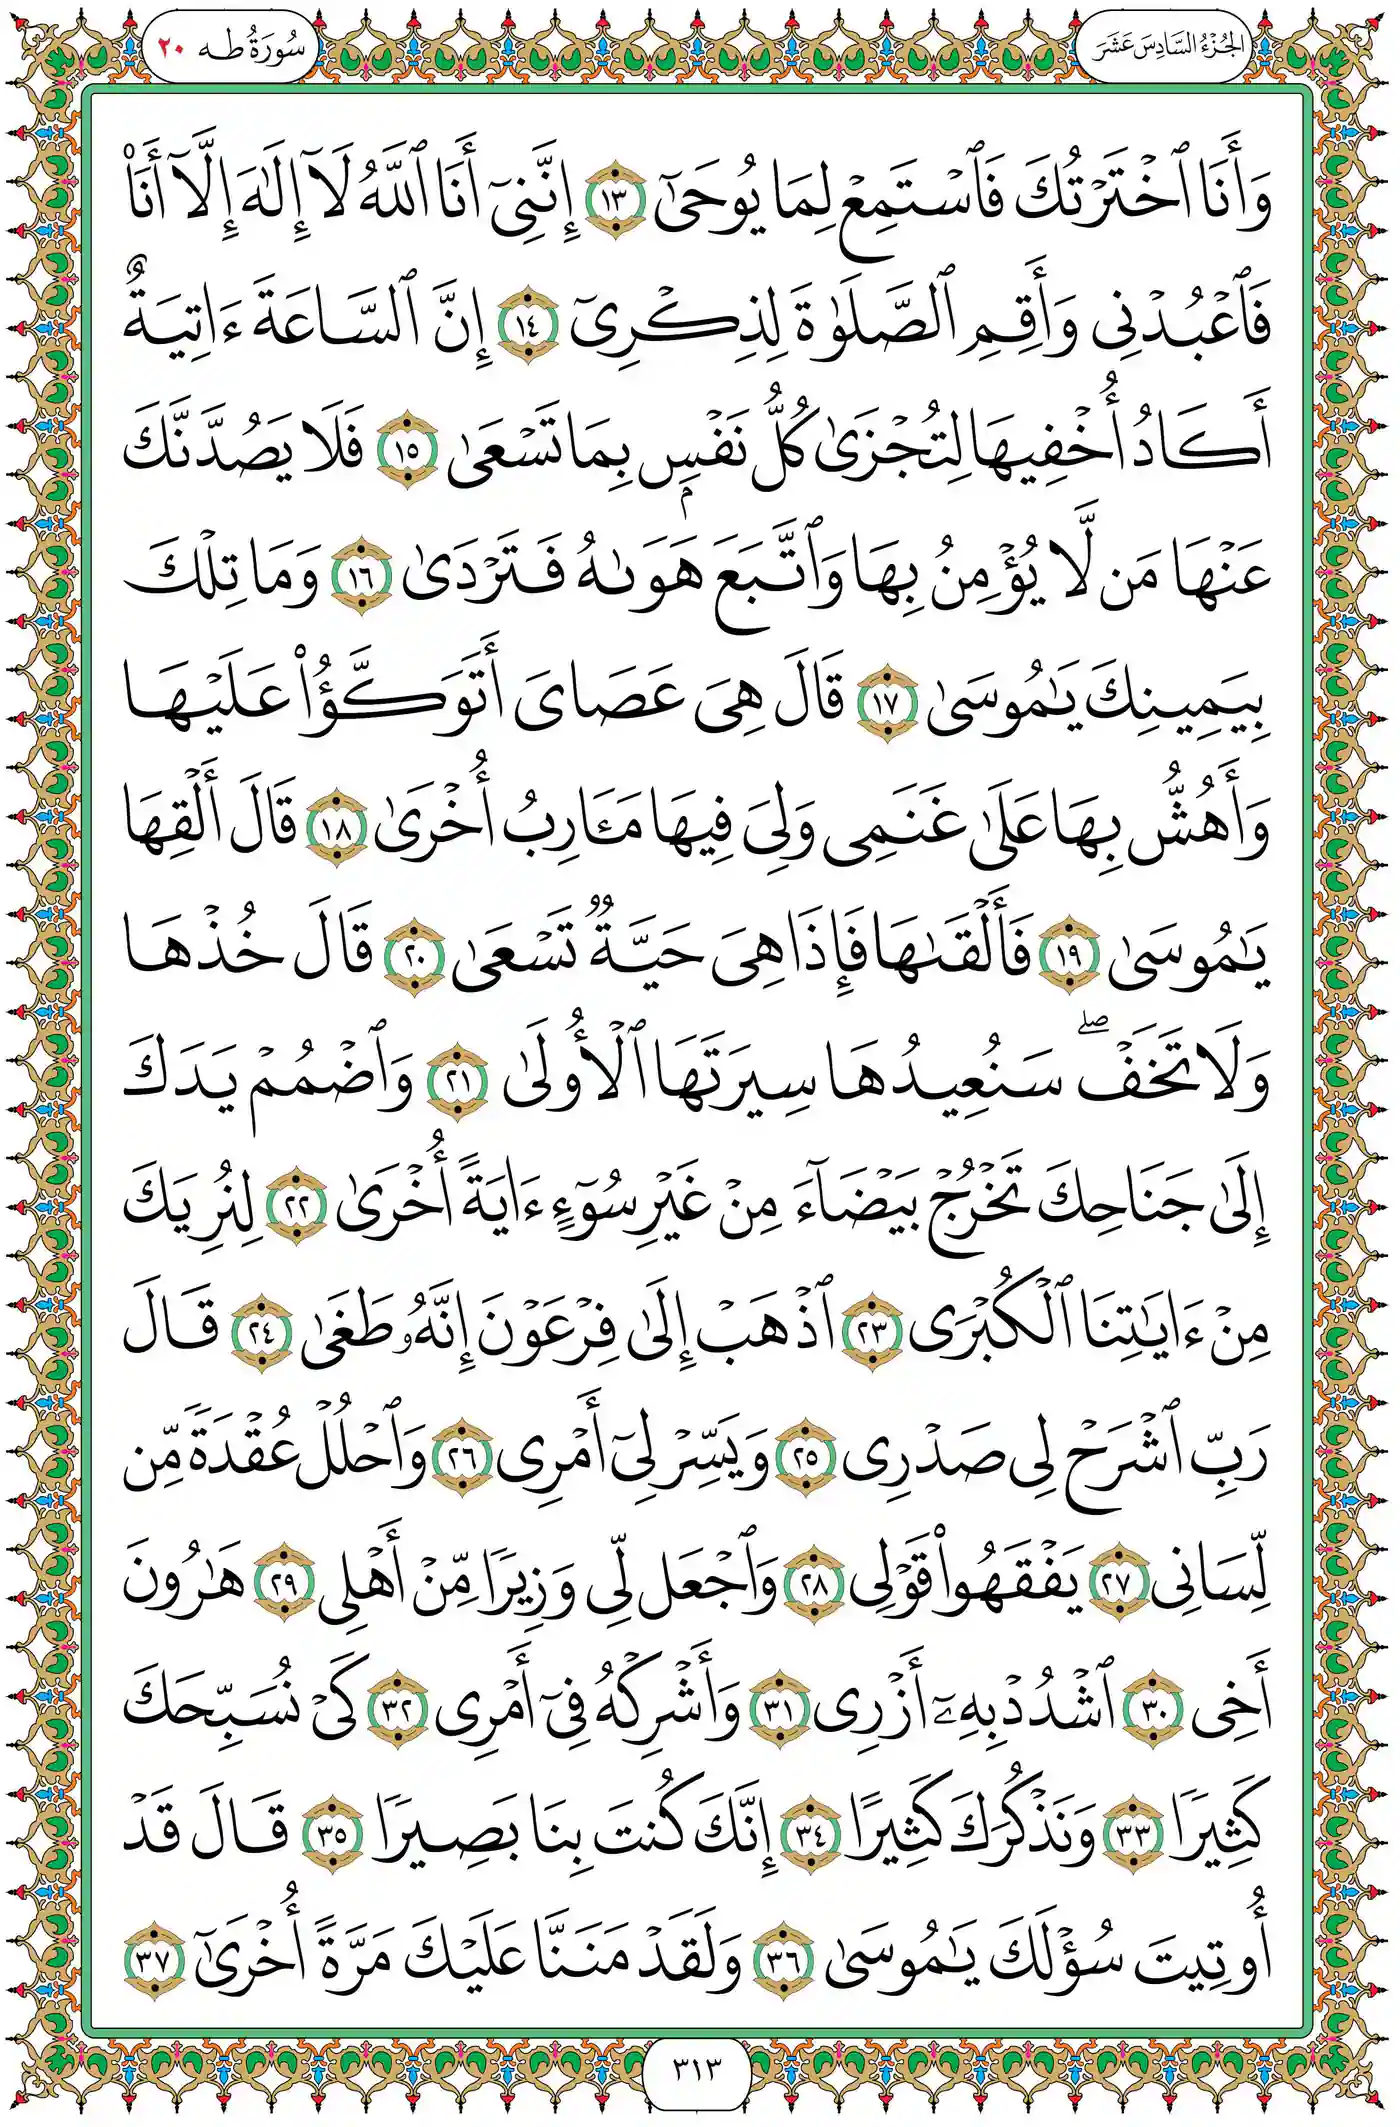 الجُزْءُ السَّادِسَ عَشَرَ
سُورَةُ طه ٢٠
وَأَنَا ٱخْتَرْتُكَ فَٱسْتَمِعْ لِمَا يُوحَىٰٓ ١٣ إِنَّنِىٓ أَنَا ٱللَّهُ لَآ إِلَٰهَ إِلَّآ أَنَا۠
فَٱعْبُدْنِى وَأَقِمِ ٱلصَّلَوٰةَ لِذِكْرِىٓ ١٤ إِنَّ ٱلسَّاعَةَ ءَاتِيَةٌ
أَكَادُ أُخْفِيهَا لِتُجْزَىٰ كُلُّ نَفْسٍۭ بِمَا تَسْعَىٰ ١٥ فَلَا يَصُدَّنَّكَ
عَنْهَا مَن لَّا يُؤْمِنُ بِهَا وَٱتَّبَعَ هَوَىٰهُ فَتَرْدَىٰ ١٦ وَمَا تِلْكَ
بِيَمِينِكَ يَٰمُوسَىٰ ١٧ قَالَ هِىَ عَصَاىَ أَتَوَكَّؤُا۟ عَلَيْهَا
وَأَهُشُّ بِهَا عَلَىٰ غَنَمِى وَلِىَ فِيهَا مَـَٔارِبُ أُخْرَىٰ ١٨ قَالَ أَلْقِهَا
يَٰمُوسَىٰ ١٩ فَأَلْقَىٰهَا فَإِذَا هِىَ حَيَّةٌ تَسْعَىٰ ٢٠ قَالَ خُذْهَا
وَلَا تَخَفْ ۖ سَنُعِيدُهَا سِيرَتَهَا ٱلْأُولَىٰ ٢١ وَٱضْمُمْ يَدَكَ
إِلَىٰ جَنَاحِكَ تَخْرُجْ بَيْضَآءَ مِنْ غَيْرِ سُوٓءٍ ءَايَةً أُخْرَىٰ ٢٢ لِنُرِيَكَ
مِنْ ءَايَٰتِنَا ٱلْكُبْرَى ٢٣ ٱذْهَبْ إِلَىٰ فِرْعَوْنَ إِنَّهُۥ طَغَىٰ ٢٤ قَالَ
رَبِّ ٱشْرَحْ لِى صَدْرِى ٢٥ وَيَسِّرْ لِىٓ أَمْرِى ٢٦ وَٱحْلُلْ عُقْدَةً مِّن
لِّسَانِى ٢٧ يَفْقَهُوا۟ قَوْلِى ٢٨ وَٱجْعَل لِّى وَزِيرًا مِّنْ أَهْلِى ٢٩ هَٰرُونَ
أَخِى ٣٠ ٱشْدُدْ بِهِۦٓ أَزْرِى ٣١ وَأَشْرِكْهُ فِىٓ أَمْرِى ٣٢ كَىْ نُسَبِّحَكَ
كَثِيرًا ٣٣ وَنَذْكُرَكَ كَثِيرًا ٣٤ إِنَّكَ كُنتَ بِنَا بَصِيرًا ٣٥ قَالَ قَدْ
أُوتِيتَ سُؤْلَكَ يَٰمُوسَىٰ ٣٦ وَلَقَدْ مَنَنَّا عَلَيْكَ مَرَّةً أُخْرَىٰٓ ٣٧
٣١٣